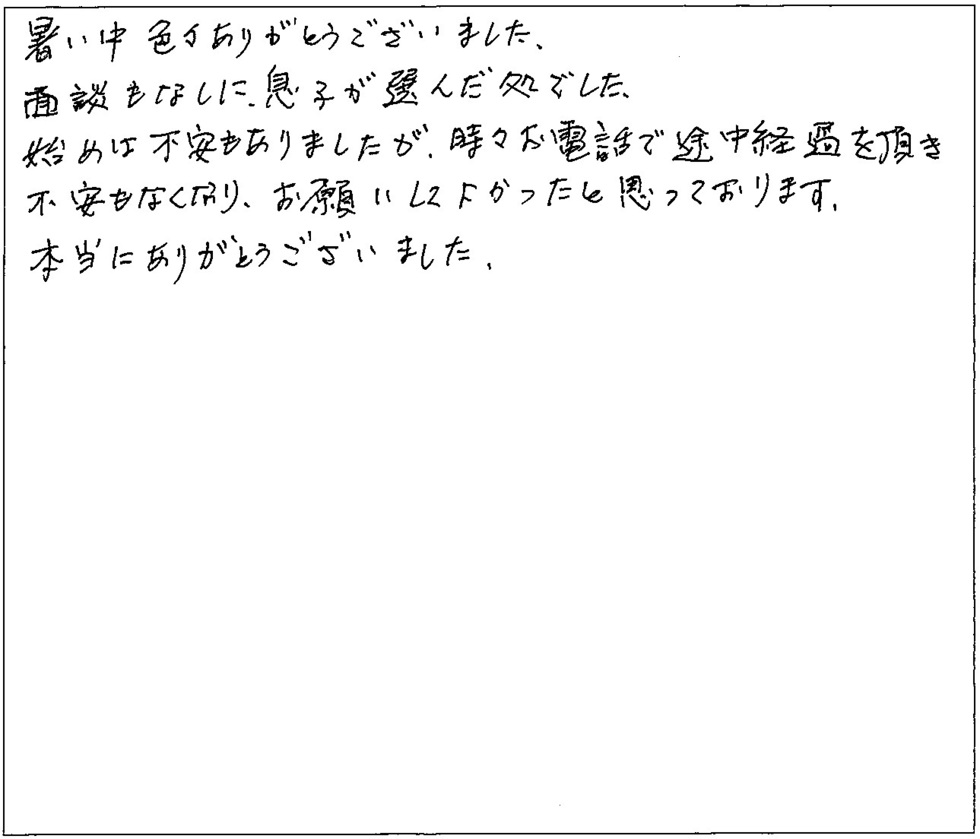 暑い中 色々ありがとうございました、
面談もなしに、息子が選んだ処でした、
始めは不安もありましたが、時々お電話で途中経過を頂き
不安もなくなり、お願いしてよかったと思っております。
本当にありがとうございました。